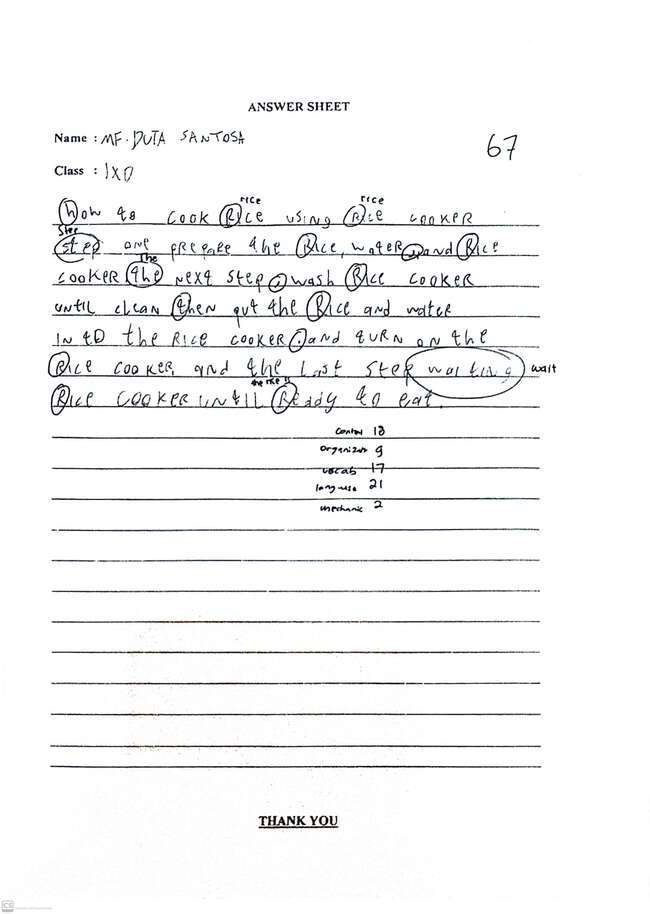 ANSWER SHEET
Name : MF. DUTA SANTOSA
67
Class : IXD
rice rice
how to cook Rice using Rice cooker
Step
step one prepare the Rice, water, and Rice
The
cooker the next step, wash Rice cooker
until clean then put the Rice and water
in to the Rice cooker, and turn on the
Rice cooker, and the last step waiting wait
the rice is
Rice cooker until Ready to eat.
content 18
organization 9
vocab 17
lang-use 21
mechanic 2
THANK YOU
CS